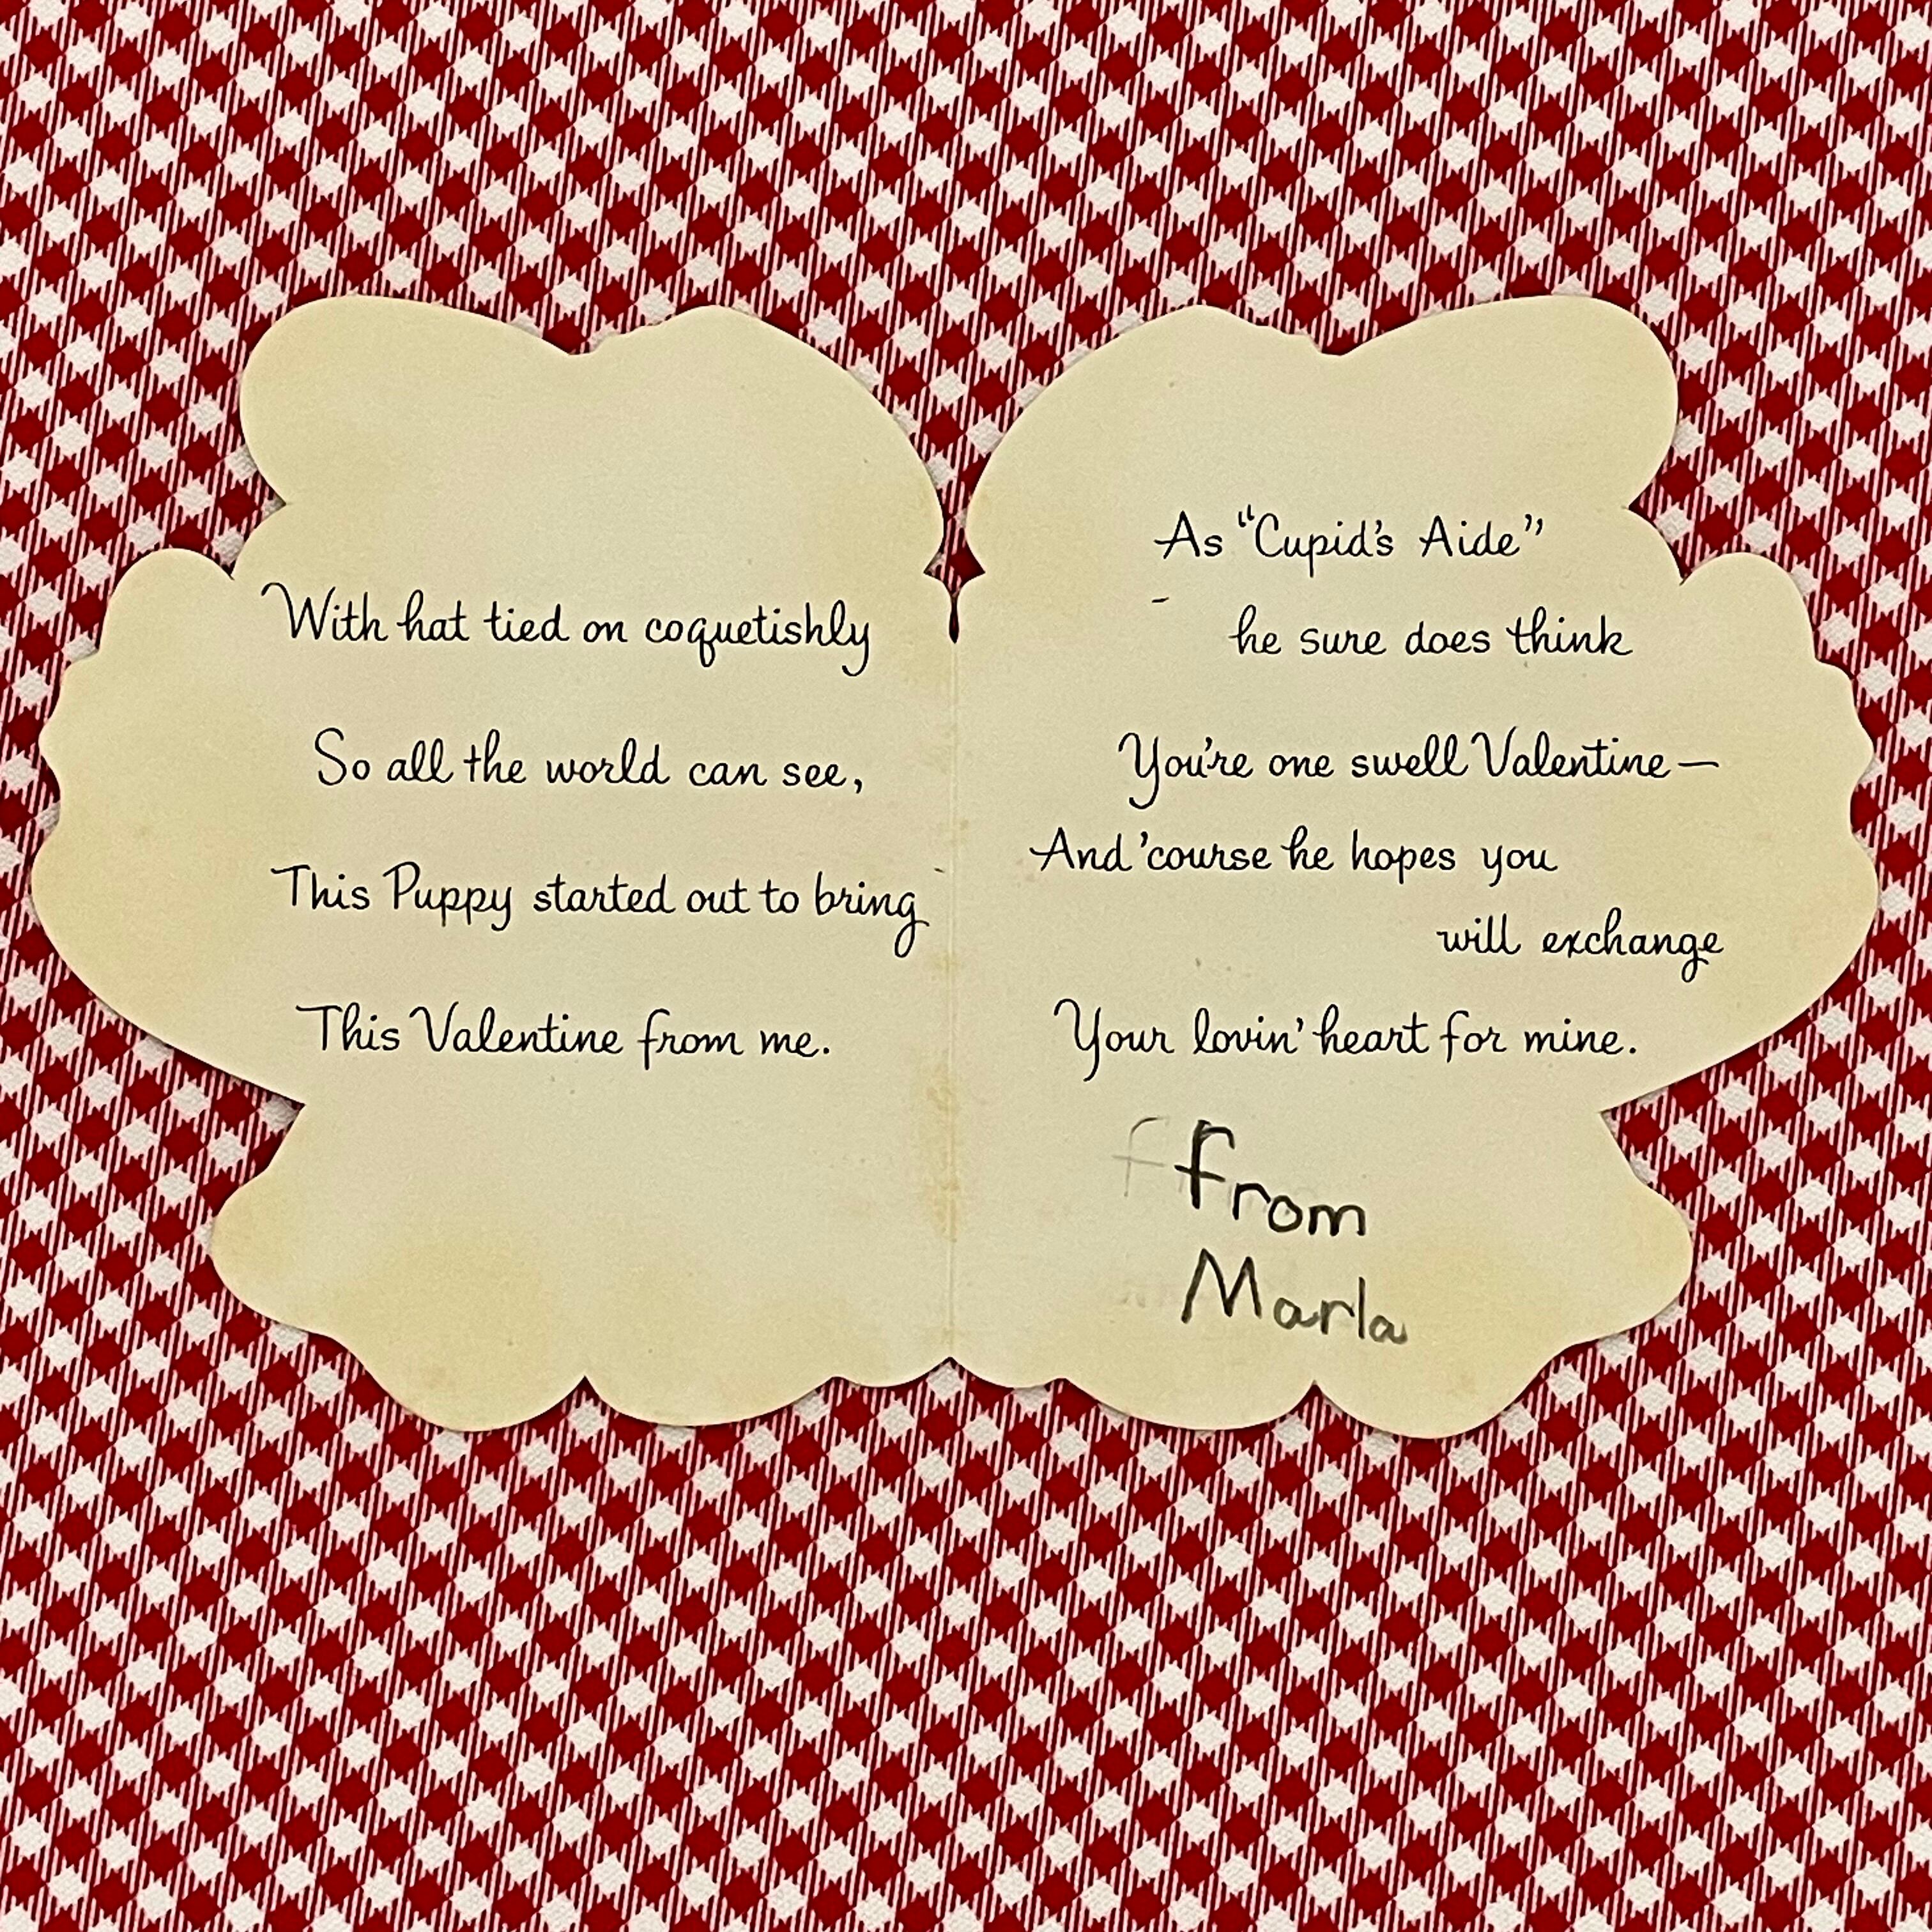 With hat tied on coquetishly
So all the world can see,
This Puppy started out to bring
This Valentine from me.
As “Cupid's Aide”
he sure does think
You're one swell Valentine—
And 'course he hopes you
will exchange
Your lovin' heart for mine.
From
Marla